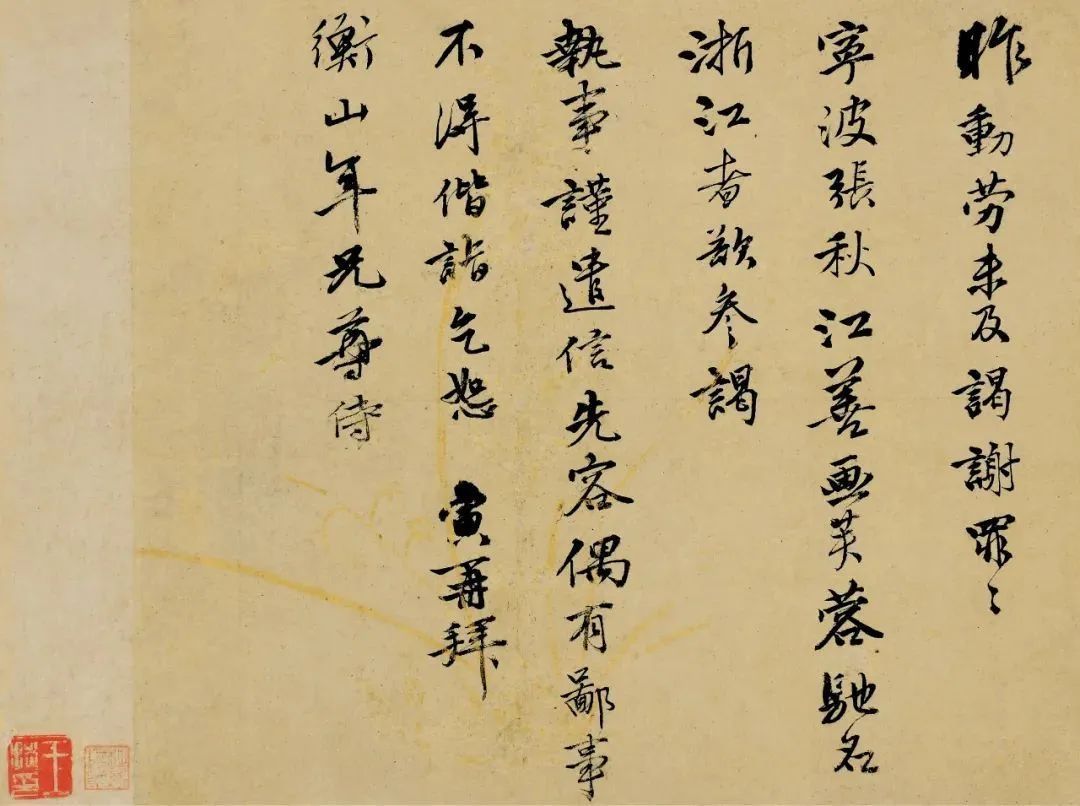 昨動劳未及謁謝罪〻
寜波張秋江善画芙蓉馳名
浙江者欲参謁
執事謹遣信先容偶有鄙事
不得偕詣乞恕 寅再拜
衡山年兄尊侍